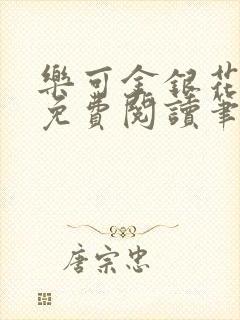 樂可金銀花
免費閱讀筆
唐宗忠